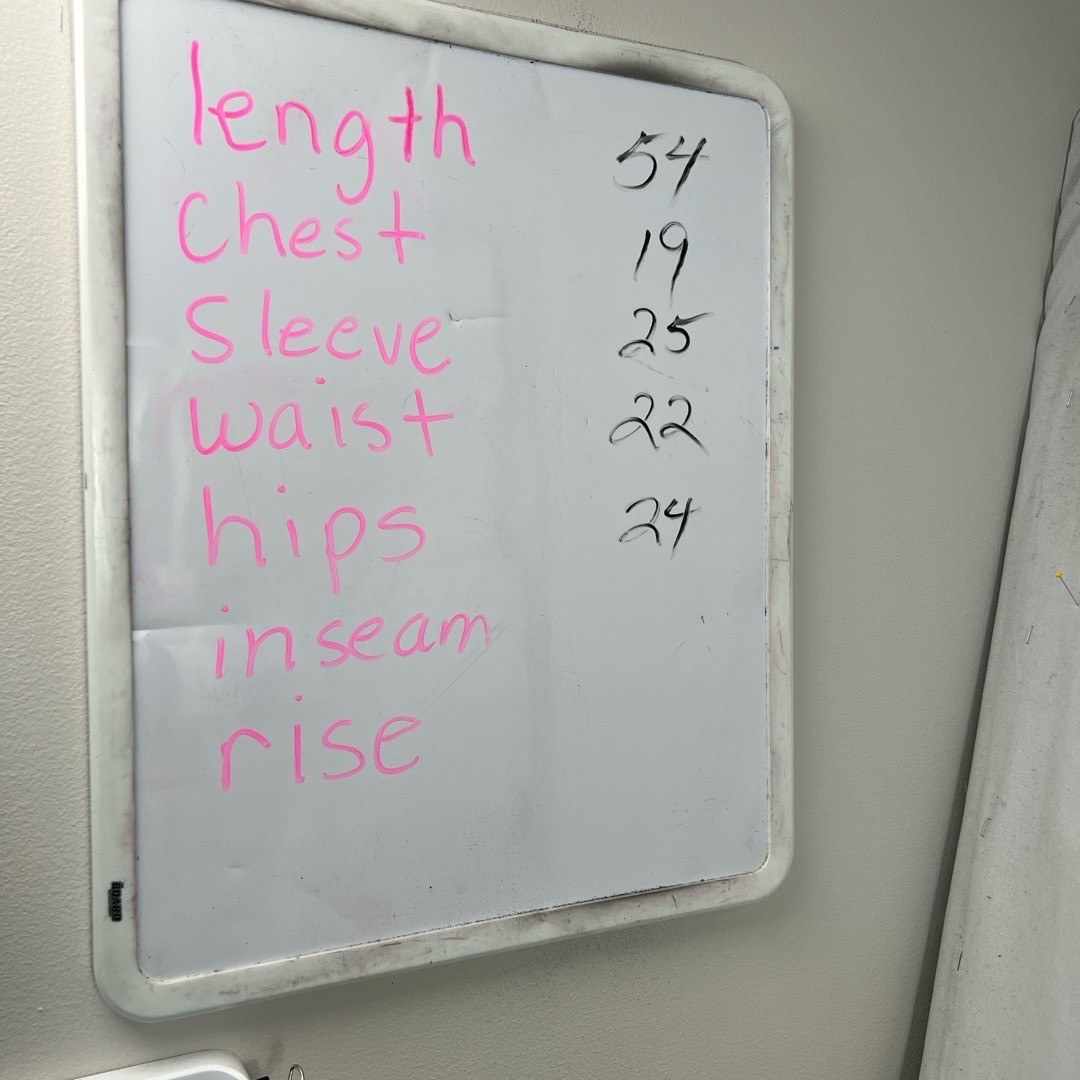 length 54
Chest 19
Sleeve 25
waist 22
hips 24
inseam
rise